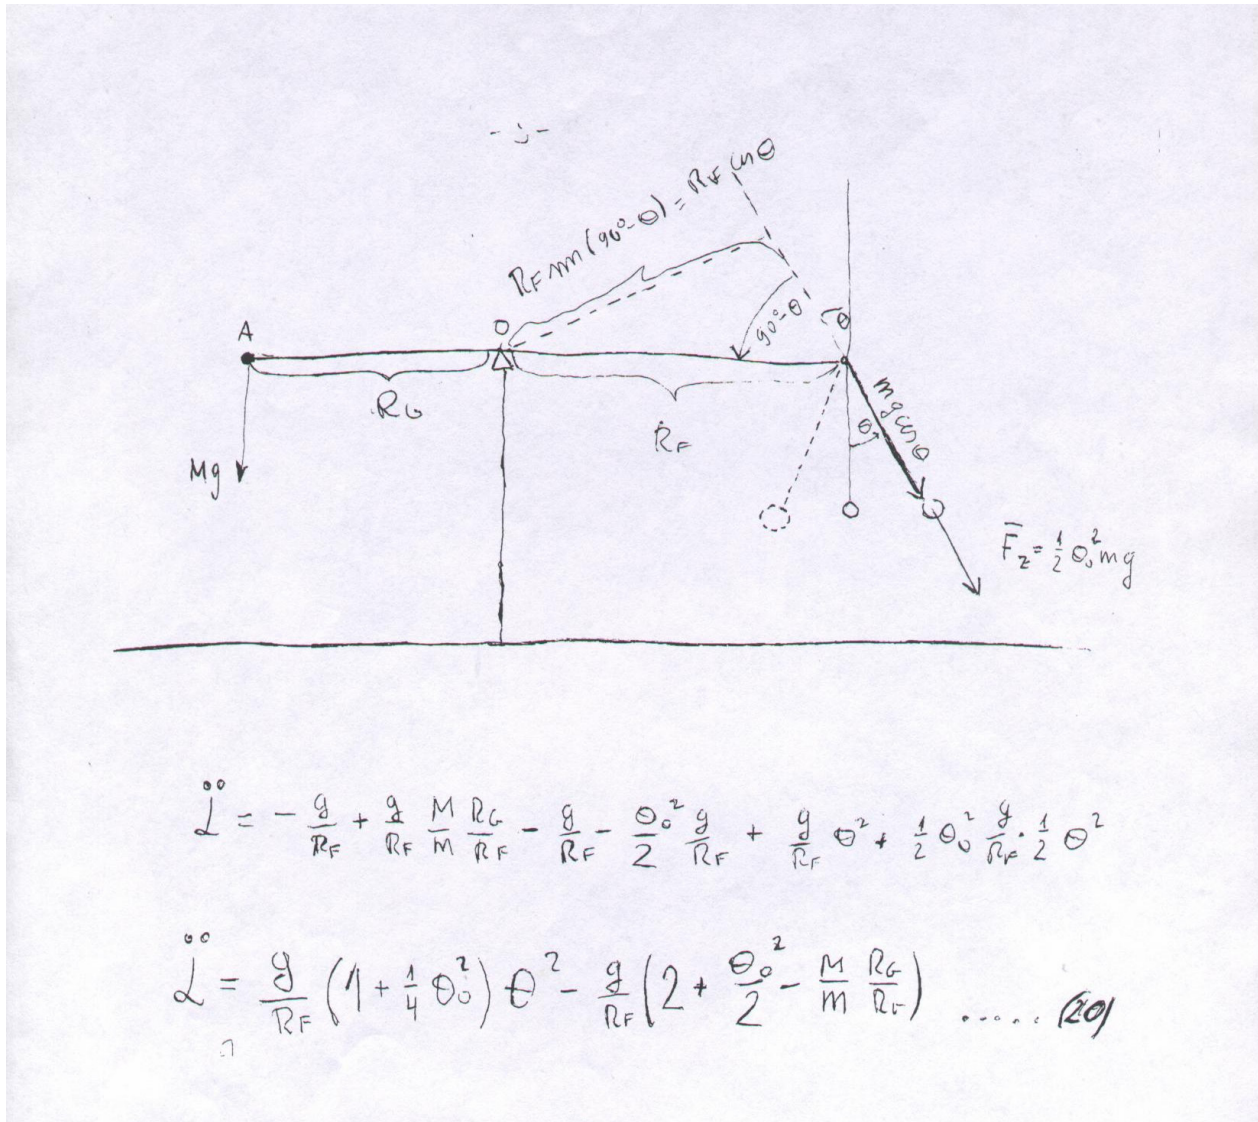 - ں -
R_F sin(90°-θ) = R_F cos θ
A
O
90°-θ
θ
R_G
R_F
Mg
θ
mg cos θ
F̄_z = 1/2 θ₀² mg
α̈ = - g/R_F + g/R_F M/m R_G/R_F - g/R_F - θ₀²/2 g/R_F + g/R_F θ² + 1/2 θ₀² g/R_F · 1/2 θ²
α̈ = g/R_F (1 + 1/4 θ₀²) θ² - g/R_F (2 + θ₀²/2 - M/m R_G/R_F) ..... (20)